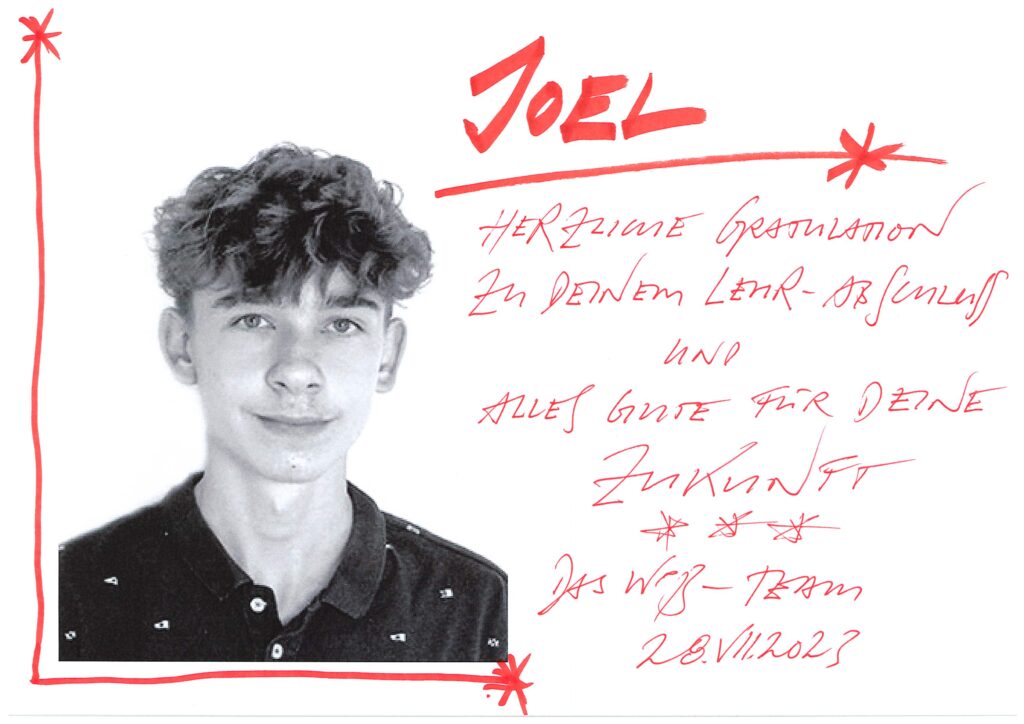 JOEL
HERZLICHE GRATULATION
ZU DEINEM LEHR-ABSCHLUSS
UND
ALLES GUTE FÜR DEINE
ZUKUNFT
* * *
DAS -TEAM
28.VII.2023